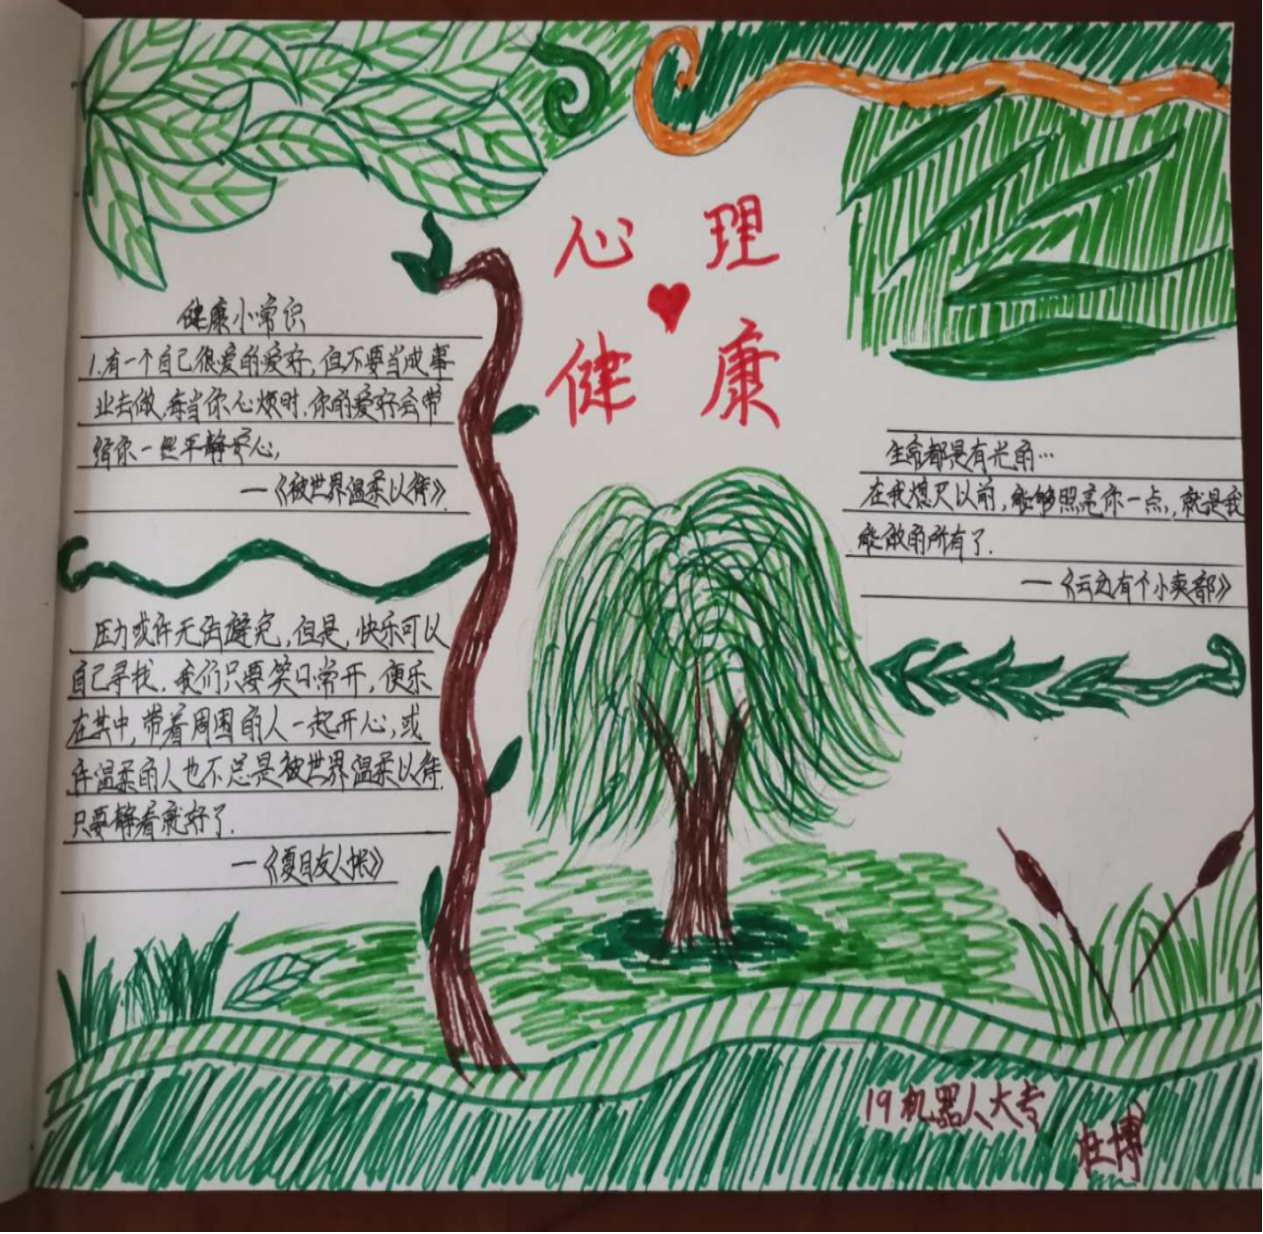 心理
健康
健康小常识
1.有一个自己很爱的爱好,但不要当成事
业去做,每当你心烦时,你的爱好会带
给你一些平静安心,
—《被世界温柔以待》
压力或许无法避免,但是,快乐可以
自己寻找,我们只要笑口常开,便乐
在其中,带着周围的人一起开心,或
许温柔的人也不总是被世界温柔以待,
只要静看就好了.
—《夏目友人帐》
生命都是有光的…
在我熄灭以前,能够照亮你一点,就是我
能做的所有了.
—《云边有个小卖部》
19机器人大专
杜博